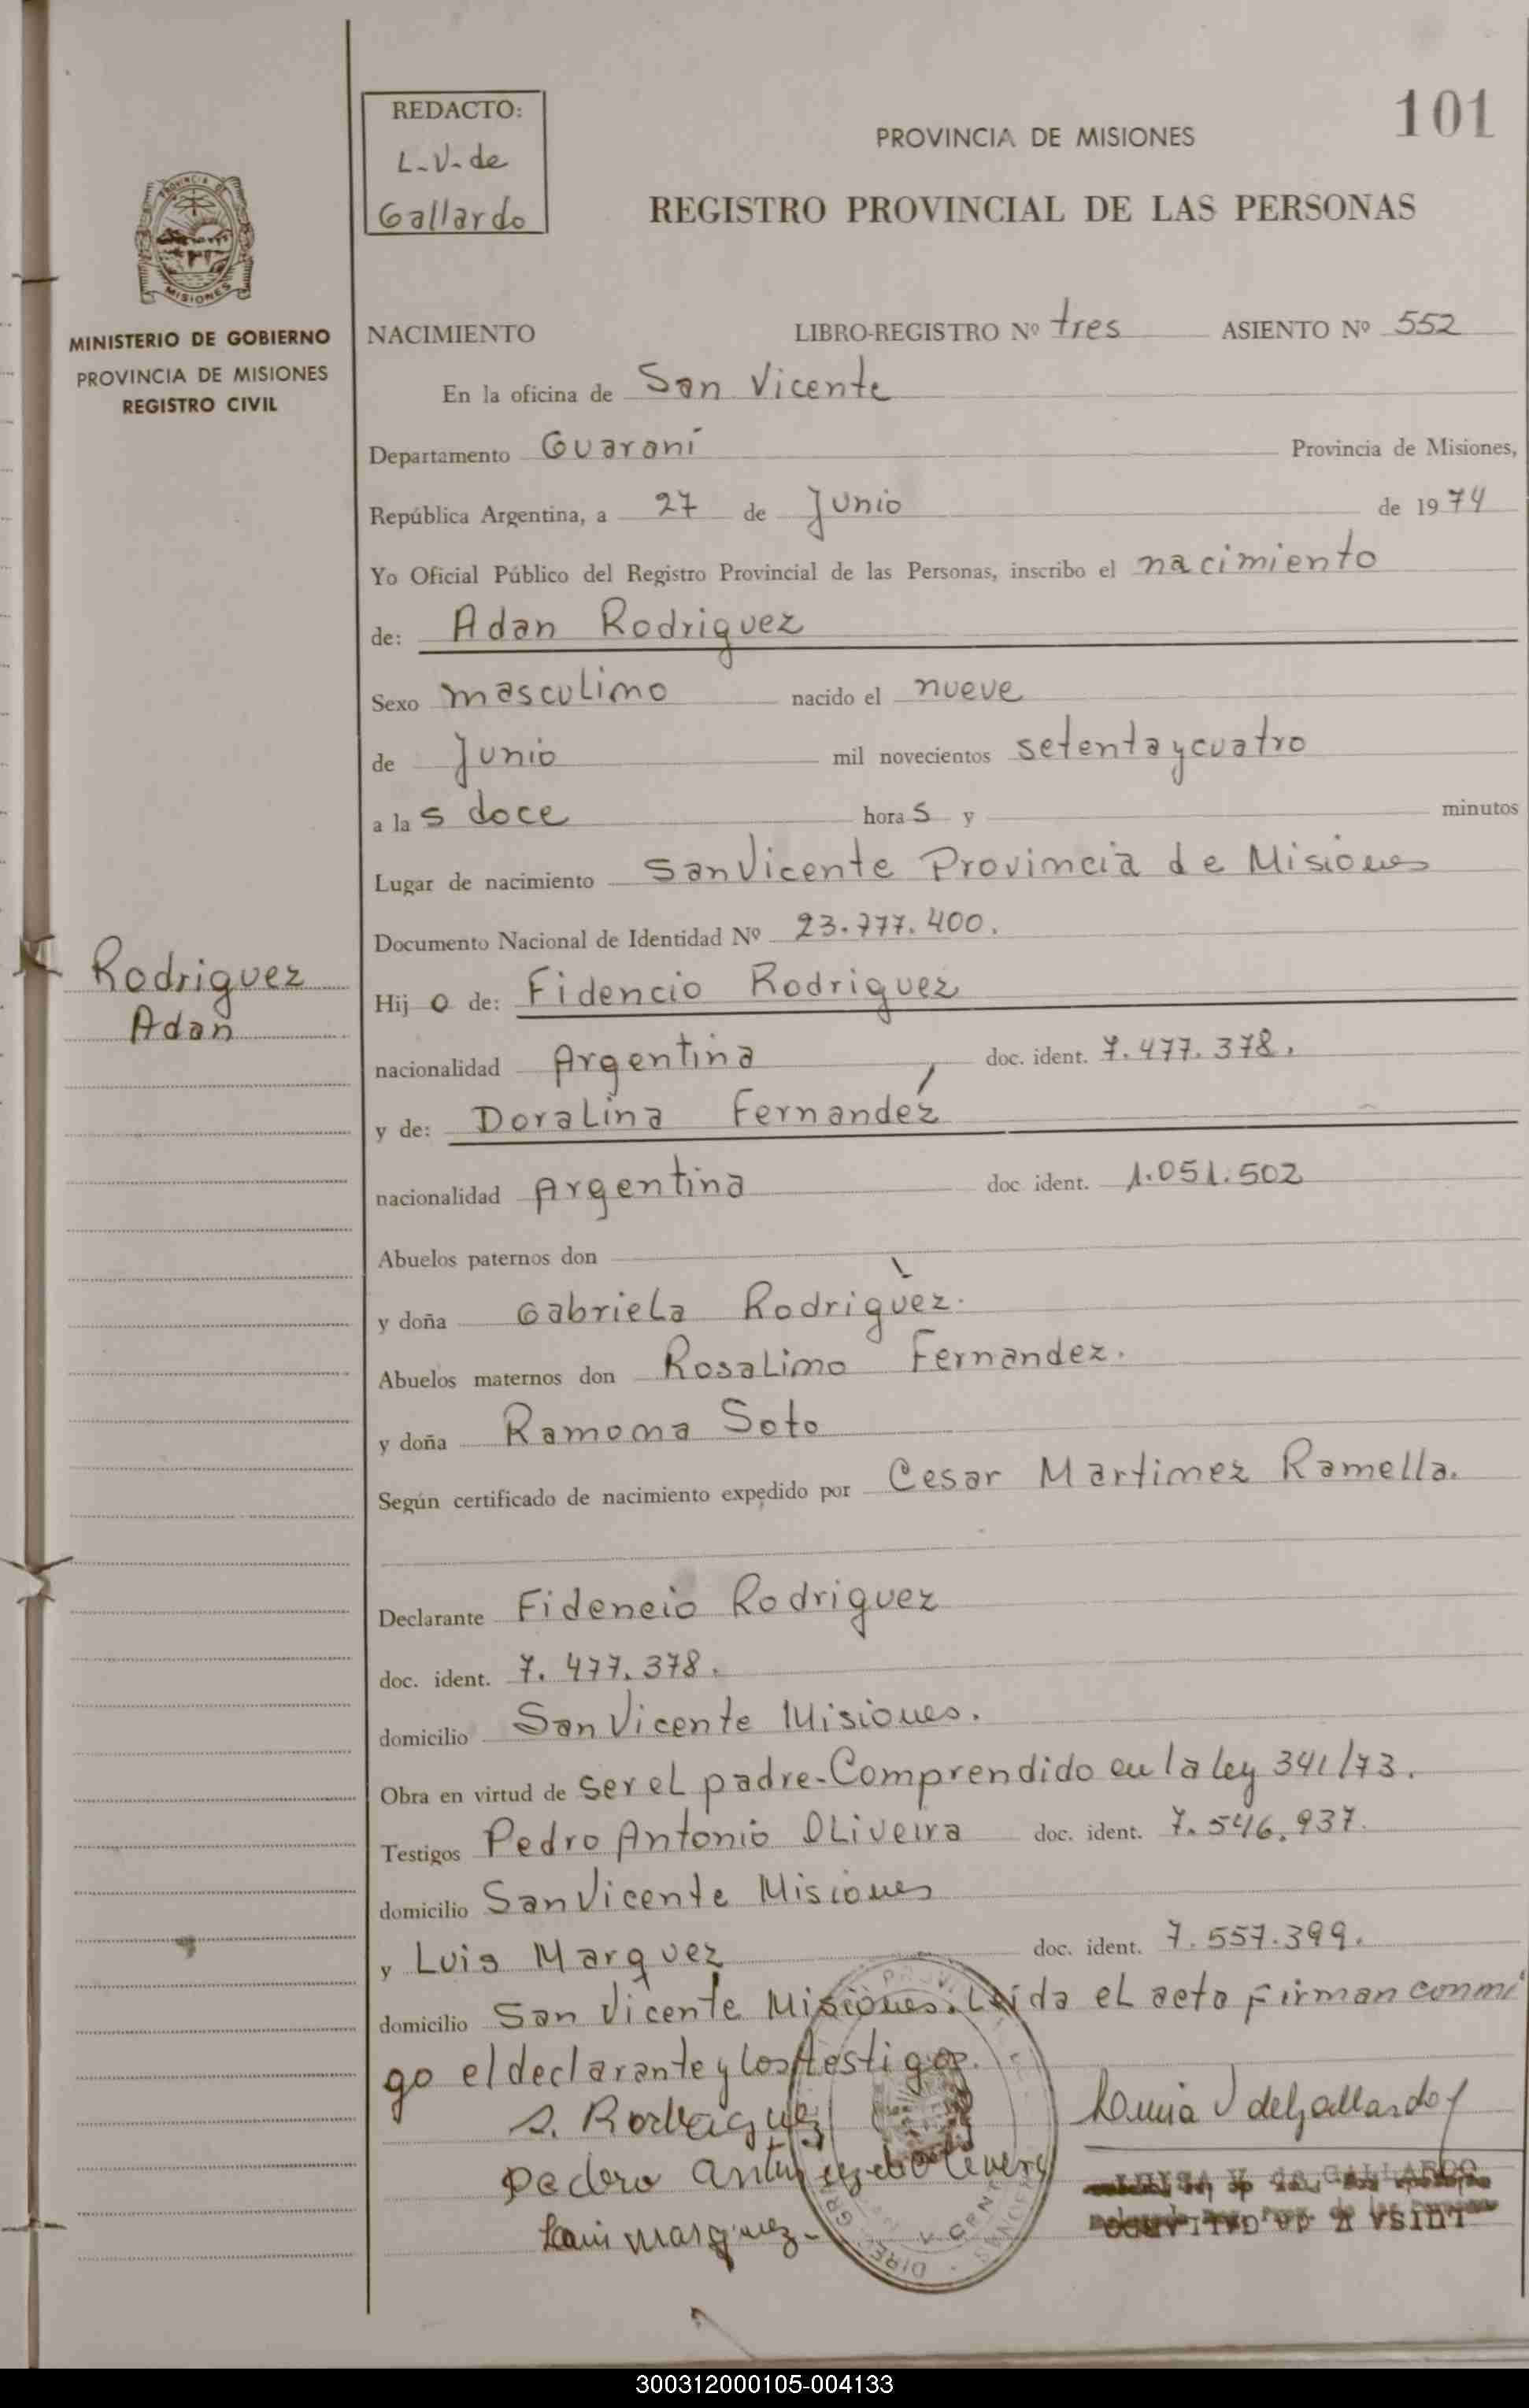 101
REDACTO:
L-V-de
Gallardo
PROVINCIA DE MISIONES
REGISTRO PROVINCIAL DE LAS PERSONAS
MISIONES
MINISTERIO DE GOBIERNO
PROVINCIA DE MISIONES
REGISTRO CIVIL
NACIMIENTO LIBRO-REGISTRO Nº tres ASIENTO Nº 552
En la oficina de San Vicente
Departamento Guaraní Provincia de Misiones,
República Argentina, a 27 de Junio de 1974
Yo Oficial Público del Registro Provincial de las Personas, inscribo el nacimiento
de: Adan Rodriguez
Sexo masculino nacido el nueve
de Junio mil novecientos setenta y cuatro
a las doce horas y minutos
Lugar de nacimiento San Vicente Provincia de Misiones
Documento Nacional de Identidad Nº 23.777.400.
Rodriguez
Adan
Hijo de: Fidencio Rodriguez
nacionalidad Argentina doc. ident. 7.477.378.
y de: Doralina Fernandez
nacionalidad Argentina doc ident. 1.051.502
Abuelos paternos don
y doña Gabriela Rodriguez.
Abuelos maternos don Rosalino Fernandez.
y doña Ramona Soto
Según certificado de nacimiento expedido por Cesar Martinez Ramella.
Declarante Fidencio Rodriguez
doc. ident. 7.477.378.
domicilio San Vicente Misiones.
Obra en virtud de ser el padre-Comprendido en la ley 341/73.
Testigos Pedro Antonio Oliveira doc. ident. 7.546.937.
domicilio San Vicente Misiones
y Luis Marquez doc. ident. 7.557.399.
domicilio San Vicente Misiones. Leida el acto firman conmi
go el declarante y los testigos.
Rodriguez
Pedro
Luis Marquez-
de Gallardo
LUISA V de GALLARDO
300312000105-004133